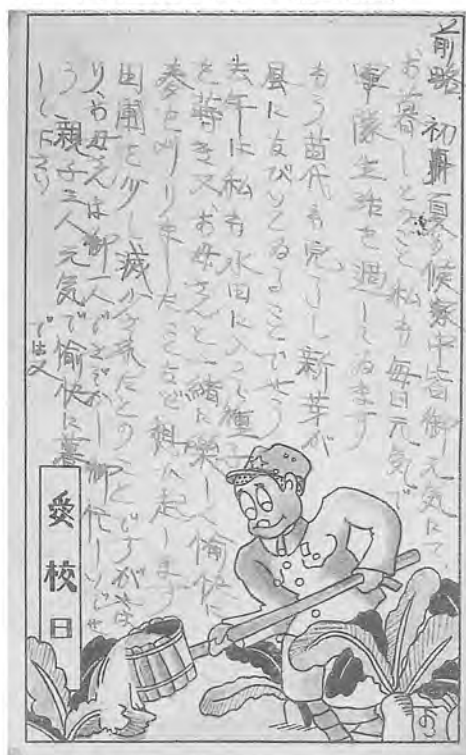 前略 初夏の候家中皆御元気にて
お暮しとのこと私も毎日元気で
軍隊生活を過してゐます
もう苗代も完了し新芽が
風になびいてゐることでせう
去年は私も水田に入って種子
を蒔き又、お母さんと一緒に楽しく愉快に
麦を刈りましたことなど想ひ起します
田圃を少し減少されたとのことですが
り、お母さんは御一人でさぞかし御忙しいでせ
う 親子三人元気で愉快に暮
して下さい
では又
愛校日